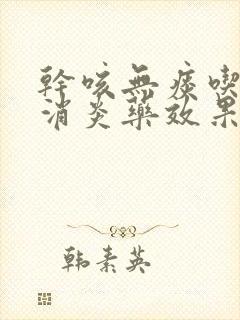 幹咳無痰喫
消炎藥效果
韩素英